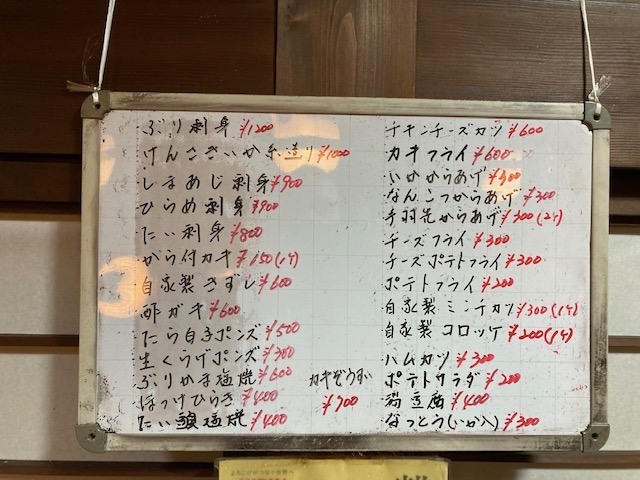 ぶり刺身 ¥1200
けんさきいか糸造り ¥1000
しまあじ刺身 ¥900
ひらめ刺身 ¥900
たい刺身 ¥800
から付カキ ¥150(1ケ)
自家製きずし ¥600
酢ガキ ¥600
たら白子ポンズ ¥500
生くらげポンズ ¥300
ぶりかま塩焼 ¥600
ほっけひらき ¥400
たい 塩焼 ¥400
カキぞうすい
¥700
チキンチーズカツ ¥600
カキフライ ¥600
いかからあげ
なんこつからあげ ¥300
手羽先からあげ ¥300(2ケ)
チーズフライ ¥300
チーズポテトフライ ¥300
ポテトフライ ¥200
自家製ミンチカツ ¥300(1ケ)
自家製コロッケ ¥200(1ケ)
ハムカツ ¥300
ポテトサラダ ¥200
湯豆腐 ¥400
なっとう(いか入) ¥300